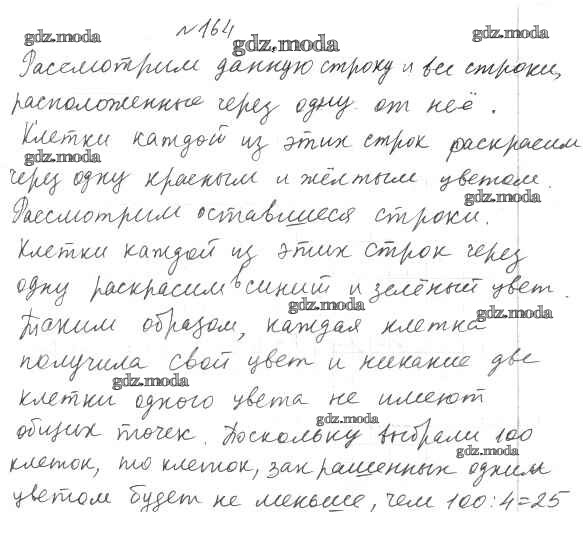 №164
gdz.moda gdz.moda gdz.moda
Рассмотрим данную строку и все строки,
расположенные через одну от неё.
Клетки каждой из этих строк раскрасим
gdz.moda
через одну красным и жёлтым цветом.
gdz.moda
Рассмотрим оставшиеся строки.
Клетки каждой из этих строк через
одну раскрасим в синий и зелёный цвет.
gdz.moda gdz.moda
Таким образом, каждая клетка
получила свой цвет и никакие две
gdz.moda
клетки одного цвета не имеют
gdz.moda
общих точек. Поскольку выбрали 100
gdz.moda
клеток, то клеток, закрашенных одним
цветом будет не меньше, чем 100:4=25